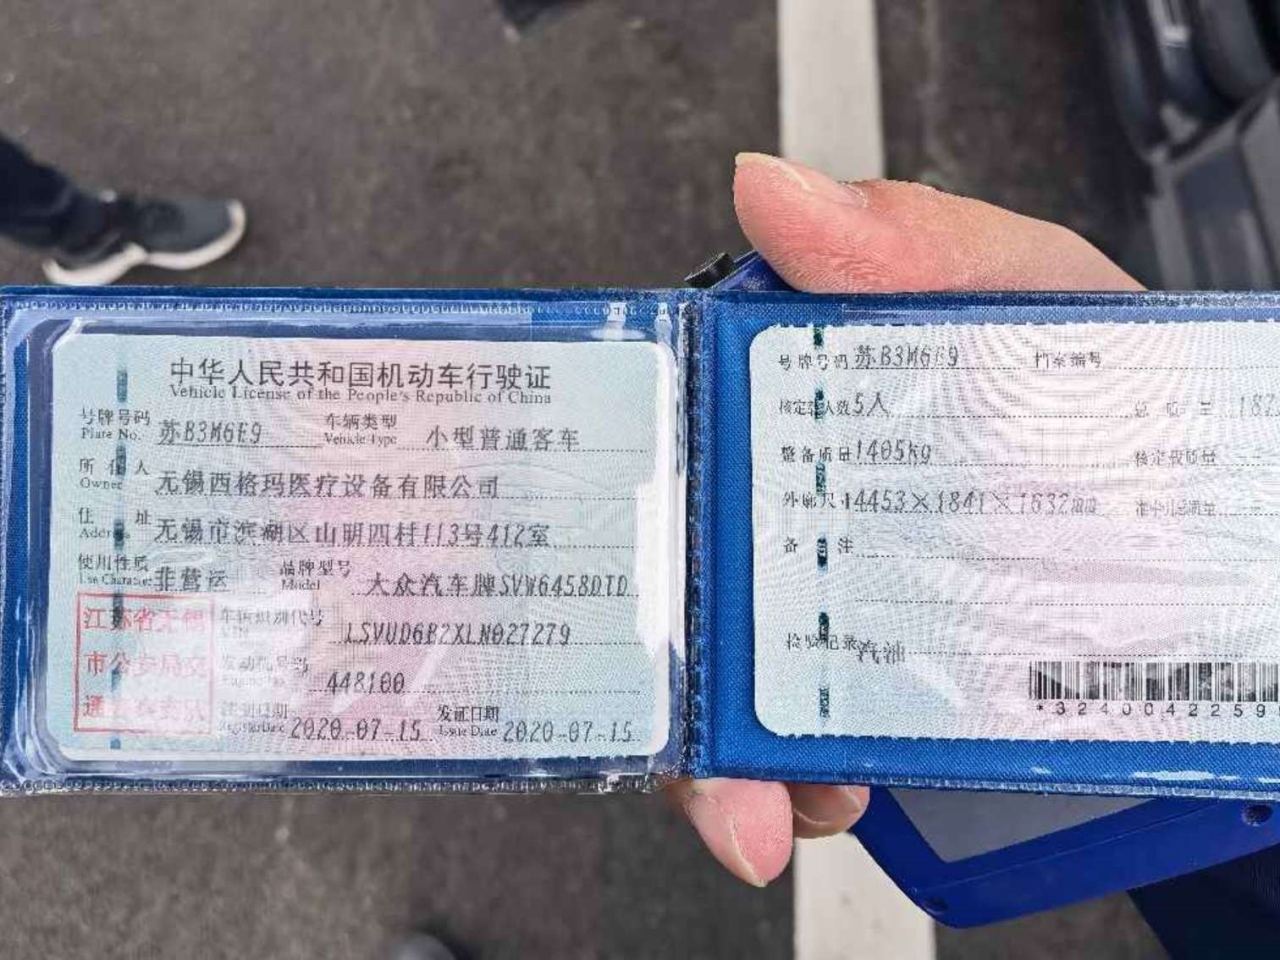 中华人民共和国机动车行驶证
Vehicle License of the People's Republic of China
号牌号码 苏B3M6E9 车辆类型 小型普通客车
Plate No. Vehicle Type
所有人 无锡西格玛医疗设备有限公司
Owner
住址 无锡市滨湖区山明四村113号412室
Address
使用性质 非营运 品牌型号 大众汽车牌SVW6458DTD
Use Character Model
江苏省无锡 车辆识别代号 LSVUD6B2XLN027279
VIN
市公安局交 发动机号码 448100
Engine No.
通警察支队 注册日期 2020-07-15 发证日期 2020-07-15
Register Date Issue Date
号牌号码 苏B3M6E9 档案编号
核定载人数 5人 总质量 187
整备质量 1405kg 核定载质量
外廓尺寸 4453×1841×1632mm 准牵引总质量
备注
检验记录 汽油
*3240042259